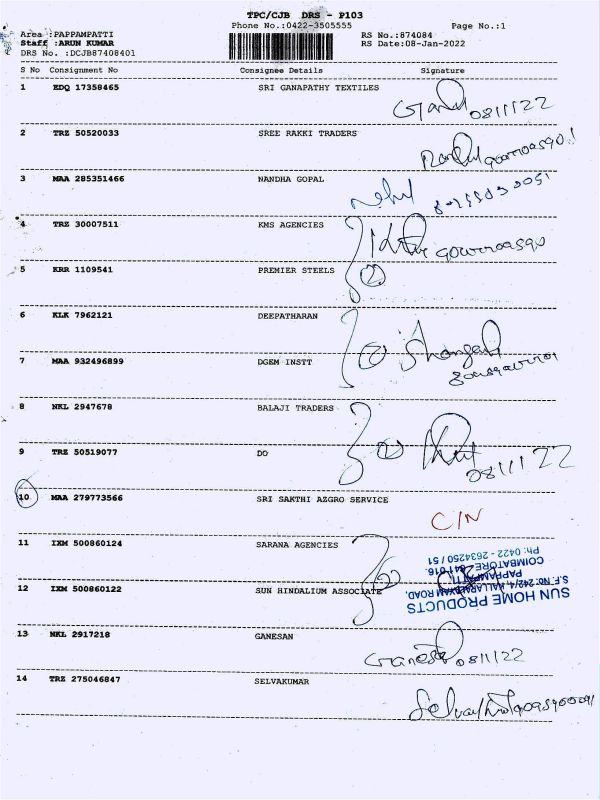 TPC/CJB DRS - P103
Phone No.:0422-3505555 Page No.:1
Area :PAPPAMPATTI RS No.:874084
Staff :ARUN KUMAR RS Date:08-Jan-2022
DRS No. :DCJB87408401
S No Consignment No Consignee Details Signature
1 EDQ 17358465 SRI GANAPATHY TEXTILES
08/1/22
2 TRZ 50520033 SREE RAKKI TRADERS
3 MAA 285351466 NANDHA GOPAL
4 TRZ 30007511 KMS AGENCIES
5 KRR 1109541 PREMIER STEELS
2
6 KLK 7962121 DEEPATHARAN
2
7 MAA 932496899 DGEM INSTT
8 NKL 2947678 BALAJI TRADERS
2
9 TRZ 50519077 DO
08/1/22
10 MAA 279773566 SRI SAKTHI AZGRO SERVICE
C/N
11 IXM 500860124 SARANA AGENCIES
2
12 IXM 500860122 SUN HINDALIUM ASSOCIATE
SUN HOME PRODUCTS
S.F.NO: 242/4, ROAD,
PAPPAMPATTI,
COIMBATORE 641 016.
Ph: 0422 - 2634250 / 51
13 NKL 2917218 GANESAN
Ganesh 08/1/22
14 TRZ 275046847 SELVAKUMAR